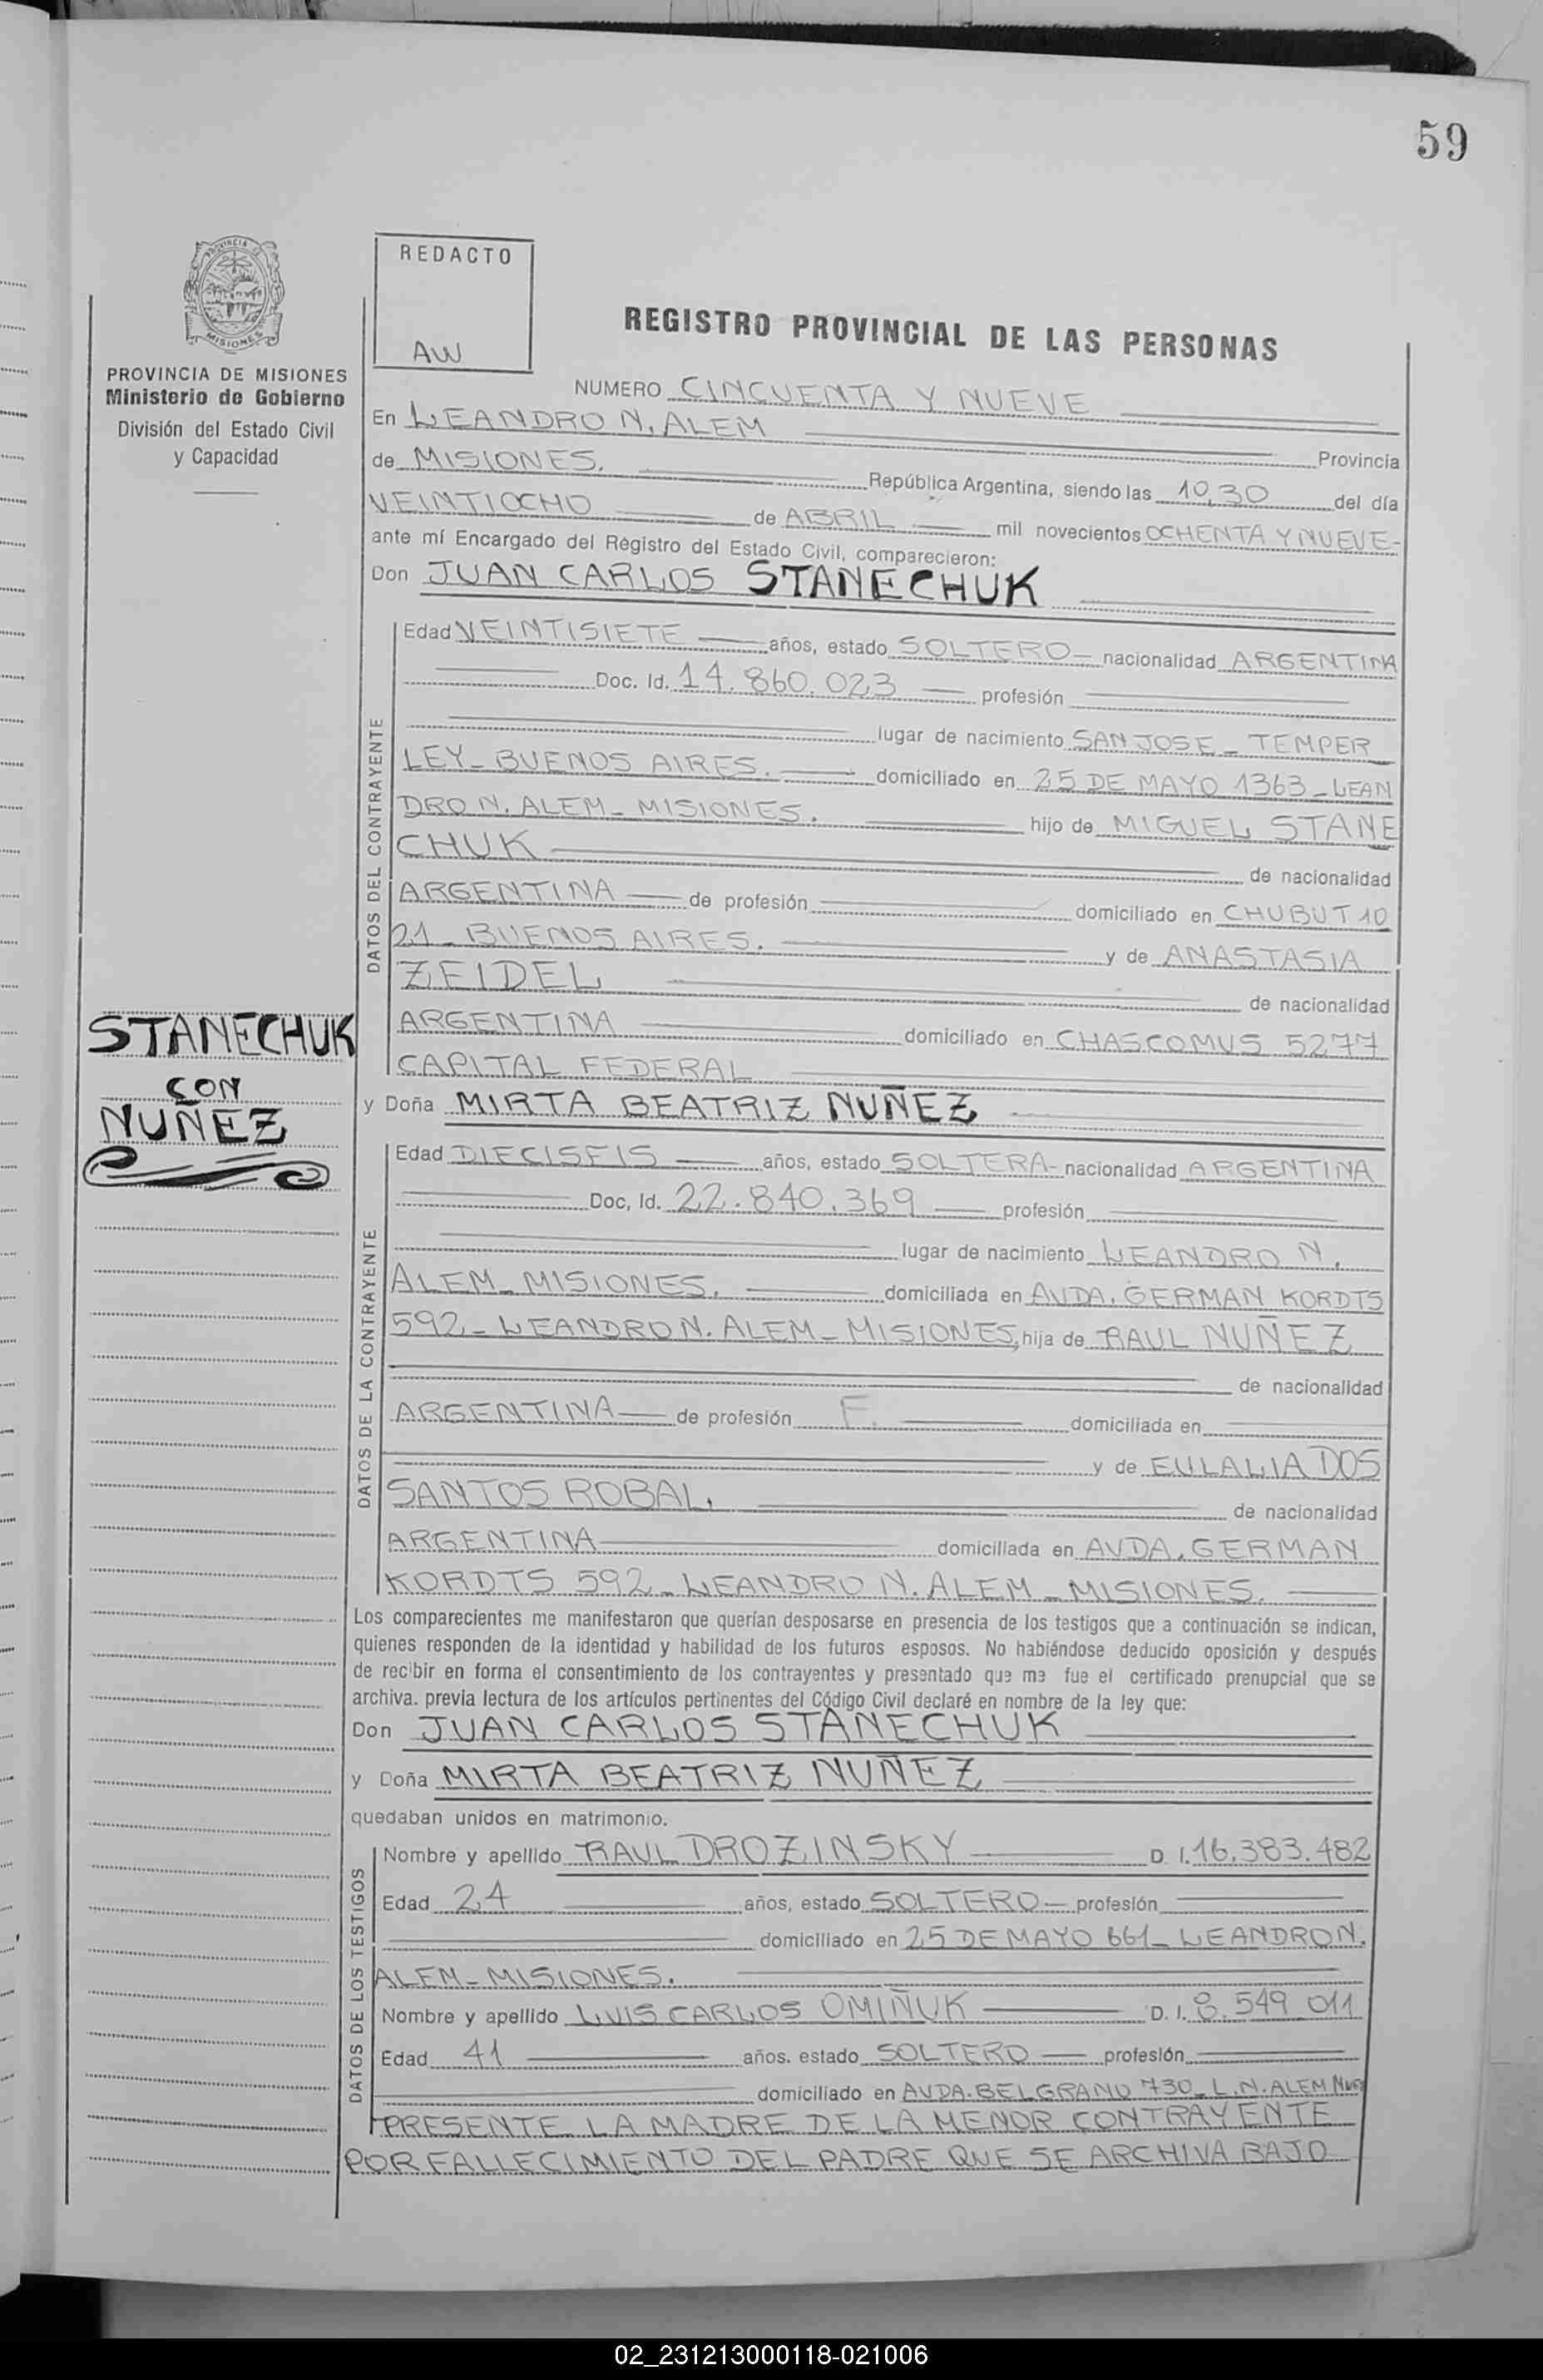 59
PROVINCIA DE
MISIONES
REDACTO
AW
PROVINCIA DE MISIONES
Ministerio de Gobierno
División del Estado Civil
y Capacidad
REGISTRO PROVINCIAL DE LAS PERSONAS
NUMERO CINCUENTA Y NUEVE
En LEANDRO N. ALEM Provincia
de MISIONES. República Argentina, siendo las 10,30 del día
VEINTIOCHO de ABRIL mil novecientos OCHENTA Y NUEVE-
ante mí Encargado del Registro del Estado Civil, comparecieron:
Don JUAN CARLOS STANECHUK
DATOS DEL CONTRAYENTE
Edad VEINTISIETE años, estado SOLTERO- nacionalidad ARGENTINA
Doc. Id. 14.860.023 profesión
lugar de nacimiento SAN JOSE - TEMPER
LEY - BUENOS AIRES. domiciliado en 25 DE MAYO 1363 - LEAN
DRO N. ALEM - MISIONES. hijo de MIGUEL STANE
CHUK de nacionalidad
ARGENTINA de profesión domiciliado en CHUBUT 10
21 - BUENOS AIRES. y de ANASTASIA
ZEIDEL de nacionalidad
ARGENTINA domiciliado en CHASCOMUS 5277
CAPITAL FEDERAL
STANECHUK
CON
NUÑEZ
y Doña MIRTA BEATRIZ NUÑEZ
DATOS DE LA CONTRAYENTE
Edad DIECISEIS años, estado SOLTERA- nacionalidad ARGENTINA
Doc, Id. 22.840.369 profesión
lugar de nacimiento LEANDRO N.
ALEM - MISIONES. domiciliada en AVDA. GERMAN KORDTS
592 - LEANDRO N. ALEM - MISIONES, hija de RAUL NUÑEZ
de nacionalidad
ARGENTINA de profesión F. domiciliada en
y de EULALIA DOS
SANTOS ROBAL. de nacionalidad
ARGENTINA domiciliada en AVDA. GERMAN
KORDTS 592 - LEANDRO N. ALEM - MISIONES.
Los comparecientes me manifestaron que querían desposarse en presencia de los testigos que a continuación se indican,
quienes responden de la identidad y habilidad de los futuros esposos. No habiéndose deducido oposición y después
de recibir en forma el consentimiento de los contrayentes y presentado que me fue el certificado prenupcial que se
archiva. previa lectura de los artículos pertinentes del Código Civil declaré en nombre de la ley que:
Don JUAN CARLOS STANECHUK
y Doña MIRTA BEATRIZ NUÑEZ
quedaban unidos en matrimonio.
DATOS DE LOS TESTIGOS
Nombre y apellido RAUL DROZINSKY D. I. 16.383.482
Edad 24 años, estado SOLTERO - profesión
domiciliado en 25 DE MAYO 661 - LEANDRO N.
ALEM - MISIONES.
Nombre y apellido LUIS CARLOS OMIÑUK D. I. 8.549.011
Edad 41 años. estado SOLTERO profesión
domiciliado en AVDA. BELGRANO 730 - L.N. ALEM
PRESENTE LA MADRE DE LA MENOR CONTRAYENTE
POR FALLECIMIENTO DEL PADRE QUE SE ARCHIVA BAJO
02_231213000118-021006